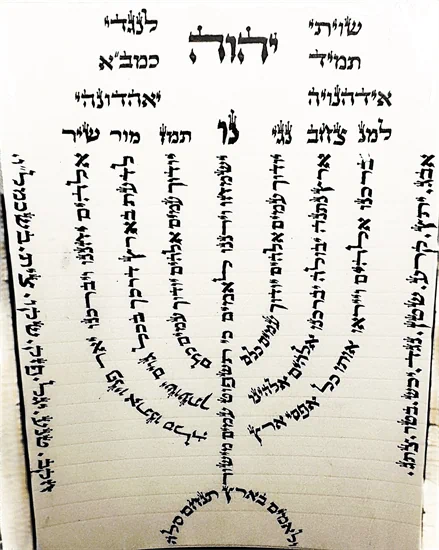 שויתי יהוה לנגדי
תמיד כמב"א
אידהנויה יאהדונהי
למנ צחב נגי נו תמז מור שיר
אלהים יחננו ויברכנו יאר פניו אתנו סלה
לדעת בארץ דרכך בכל גוים ישועתך
יודוך עמים אלהים יודוך עמים כלם
ישמחו וירננו לאמים כי תשפט עמים מישור
ולאמים בארץ תנחם סלה
יודוך עמים אלהים יודוך עמים כלם
ארץ נתנה יבולה יברכנו אלהים אלהינו
יברכנו אלהים וייראו אותו כל אפסי ארץ
אבג. יתץ. קרע. שטן. נגד. יכש. בטר. צתג.
חקב. טנע. יגל. פזק. שקו. צית. בשכמל"ו